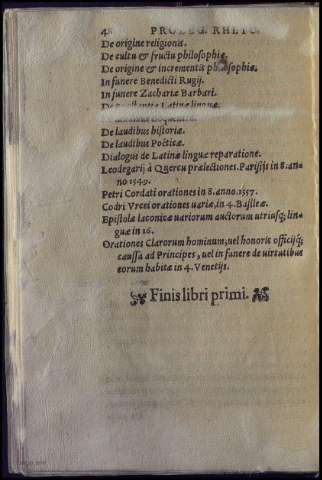 4 PROLEG. RHETO.
De origine religionis.
De cultu & fructu philosophiæ.
De origine & incrementis philosophiæ.
In funere Benedicti Rugij.
In funere Zachariæ Barbari.
De Latinæ linguæ.
De laudibus eloquentiæ.
De laudibus historiæ.
De laudibus Poëticæ.
Dialogus de Latinæ linguæ reparatione.
Leodegarij à Quercu prælectiones. Parisijs in 8. an-
no 1549.
Petri Cordati orationes in 8. anno. 1557.
Codri Vrcei orationes uariæ, in 4. Basileæ.
Epistolæ laconicæ uariorum auctorum utriusq; lin-
guæ in 16.
Orationes Clarorum hominum, uel honoris officijq;
caussa ad Principes, uel in funere de uirtutibus
eorum habitæ in 4. Venetijs.
Finis libri primi.